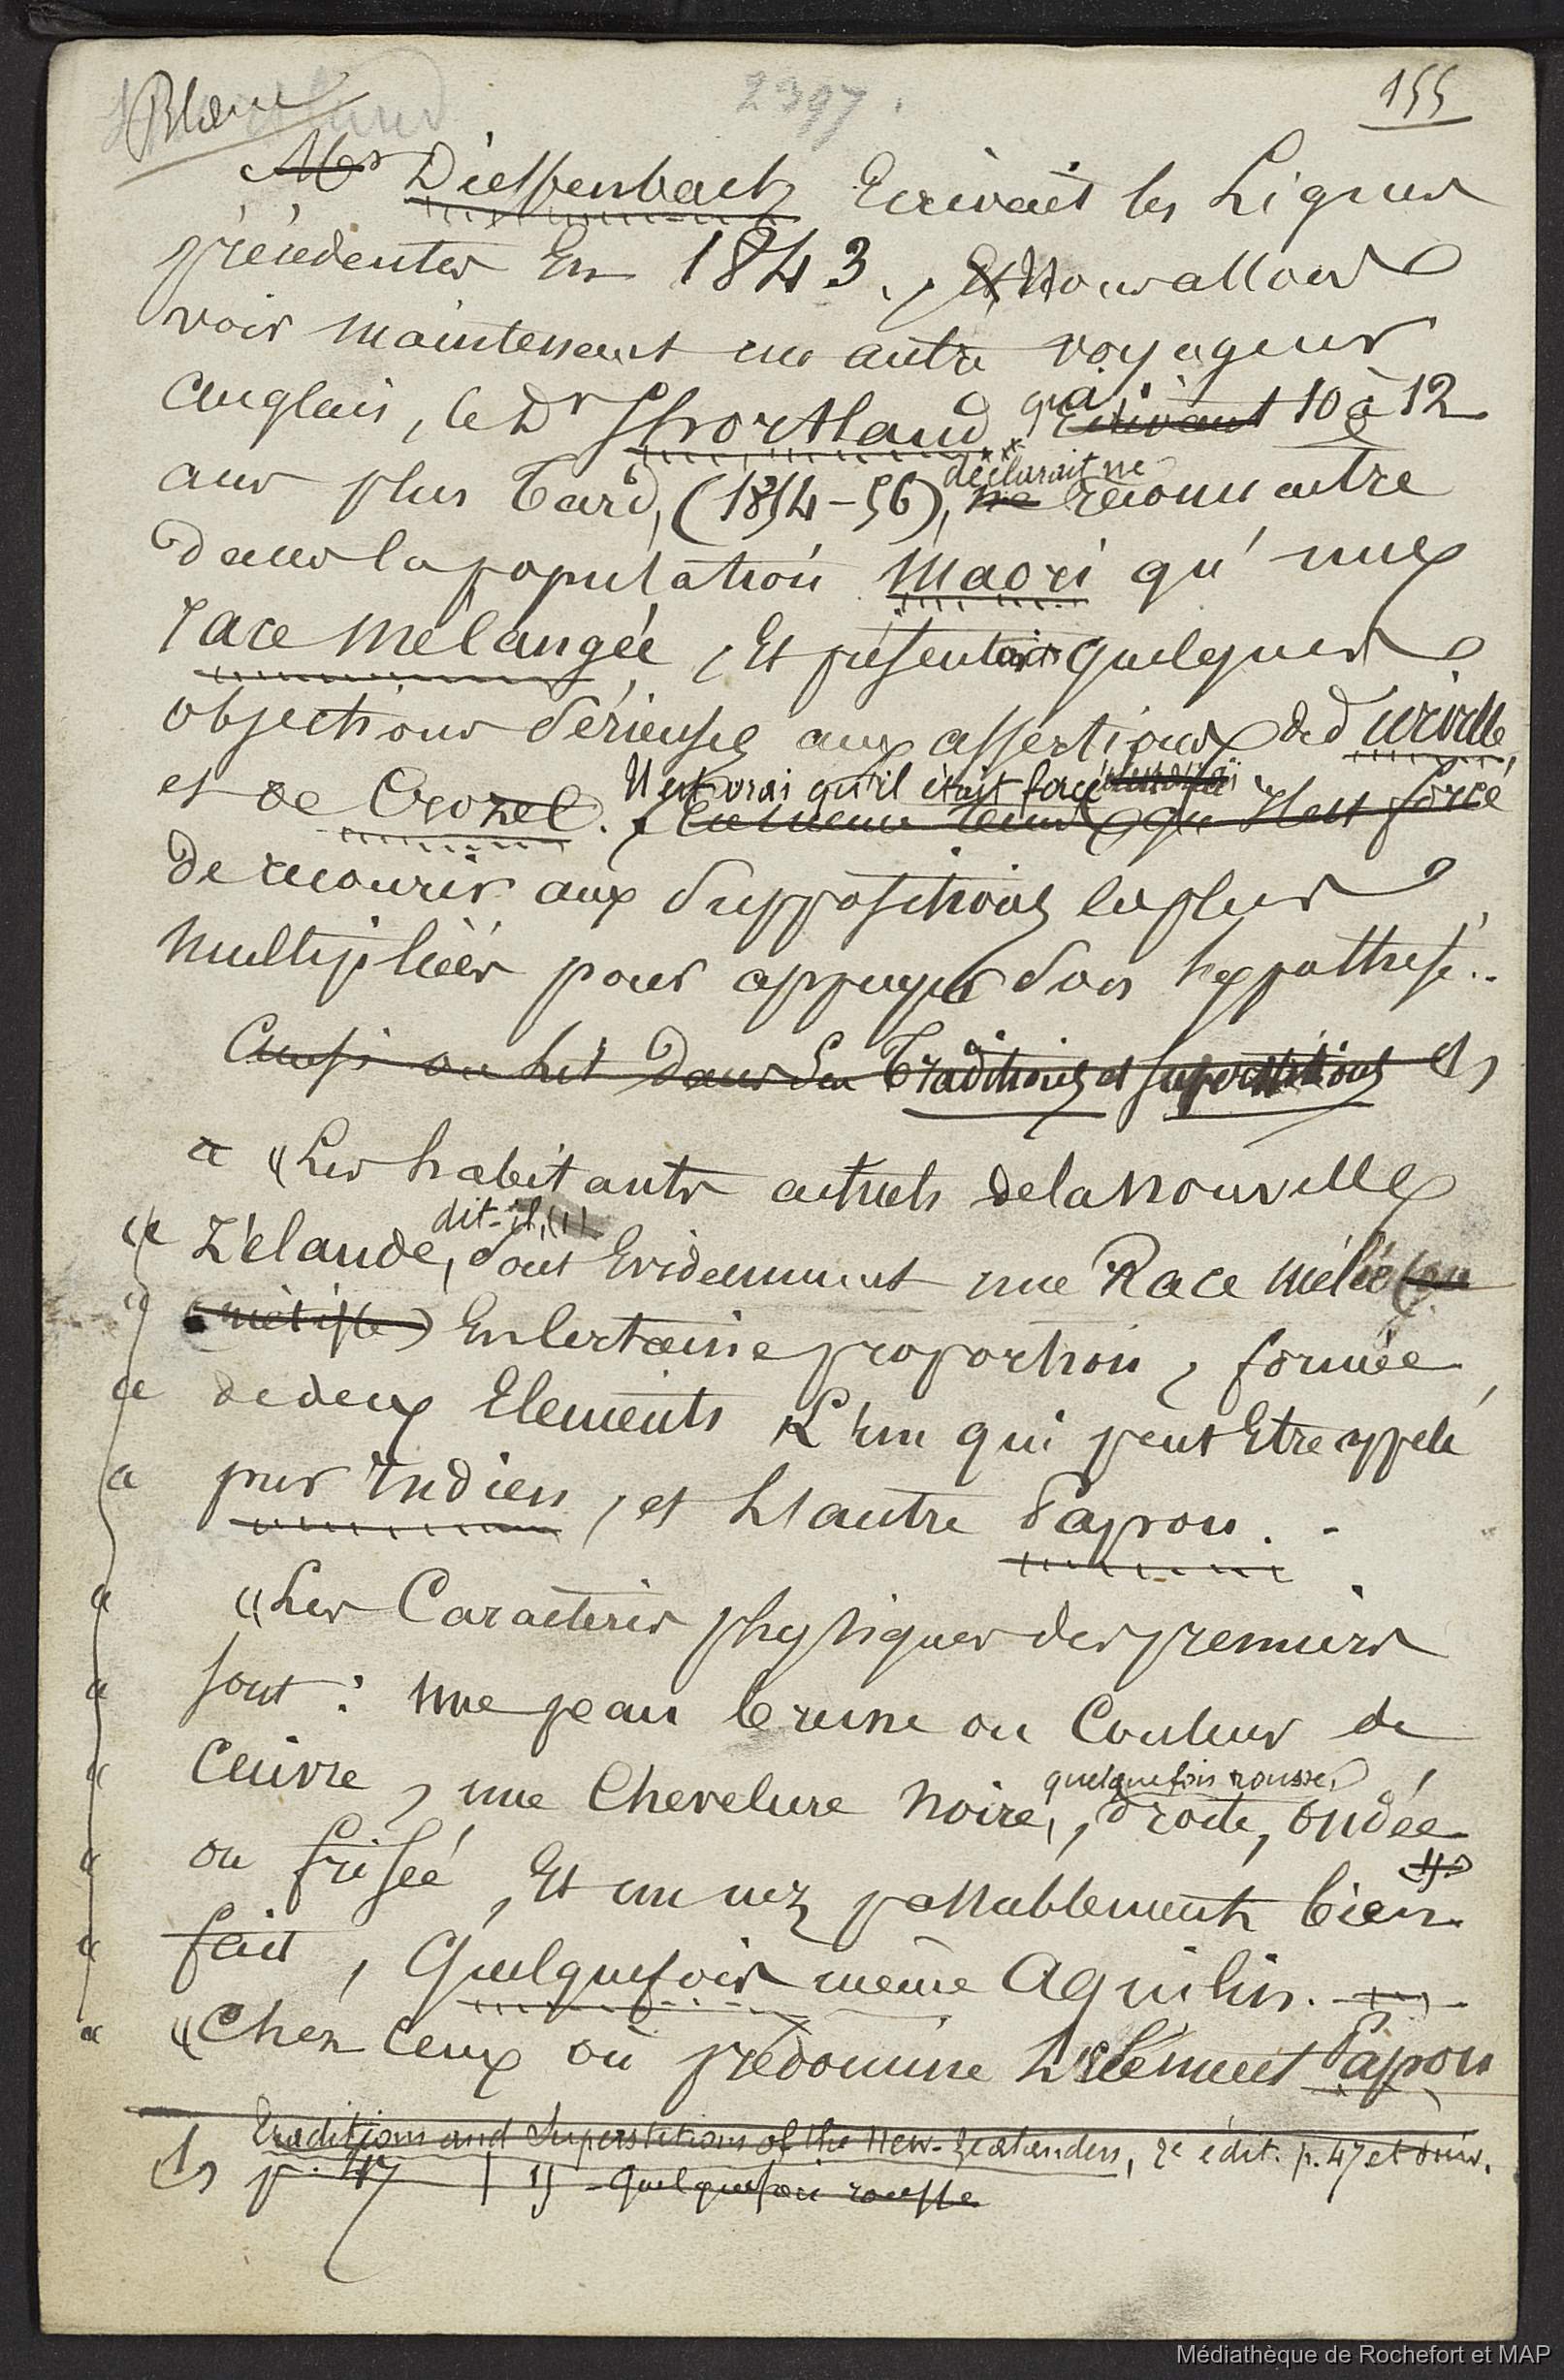 Blanc
2397.
155
Mr Dieffenbach Ecrivait les Lignes
précédentes En 1843. Et Nous allons
voir maintenant un autre voyageur
anglais, le Dr Shortland, qui, Ecrivant 10 à 12
ans plus Tard, (1854-56), déclarait ne ne reconnaitre
dans la population Maori qu'une
race mélangée, Et présentait quelques
objections sérieuses aux assertions de d'urville,
et de Crozet. Il est vrai qu'il était forcé En même temps qu'Il est forcé
de recourir aux suppositions les plus
multipliées pour appuyer son hypothèse..
Ainsi on lit dans ses Traditions et superstitions (1)
« Les habitants actuels de la Nouvelle
« Zélande, dit-il, (1) sont Evidemment une Race mêlée (ou
« métisse) En certaine proportion, formée
« de deux Elements L'un qui peut Etre appelé
« pur Indien, et L'autre Papou. -
« « Les Caractères physiques des premiers
« sont : une peau brune ou Couleur de
« Cuivre, une Chevelure Noire, quelquefois rousse, droite, ondée
« ou frisée, Et un nez passablement bien
« fait, Quelquefois même Aquilin. -
« « Chez Ceux où prédomine L'élément Papou
(1) Traditions and Superstitions of the New-Zealanders, 2e édit. p. 47 et suiv.
p. 47 1) - quelquefois rousse
Médiathèque de Rochefort et MAP